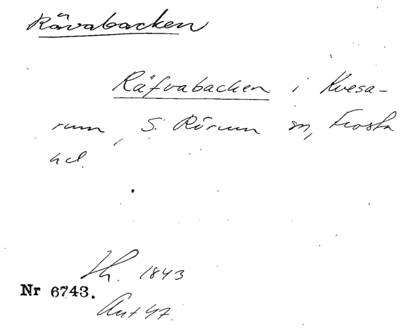 Rävabacken
Räfvabacken i Kvesa-
rum, S. Rörum sn, Frosta
hd.
Lh. 1843
Nr 6743.
Ant 47.